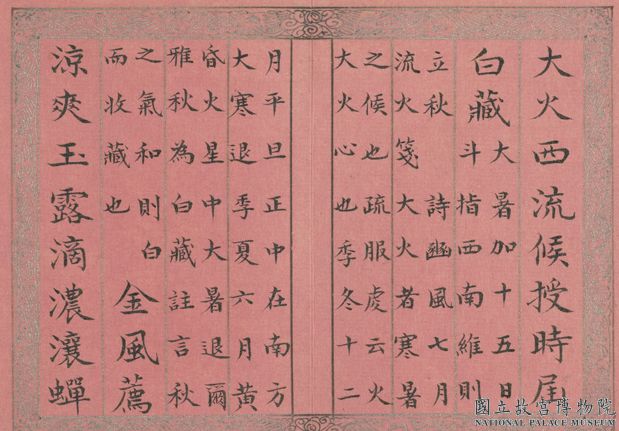 大火西流候授時屆
白藏
大暑加十五日
斗指西南維則
立秋 詩豳風七月
流火箋大火者寒暑
之候也疏服虔云火
大火心也季冬十二
月平旦正中在南方
大寒退季夏六月黃
昏火星中大暑退爾
雅秋為白藏註言秋
之氣和則白
而收藏也
金風薦
涼爽玉露滴濃瀼蟬
國立故宮博物院
NATIONAL PALACE MUSEUM